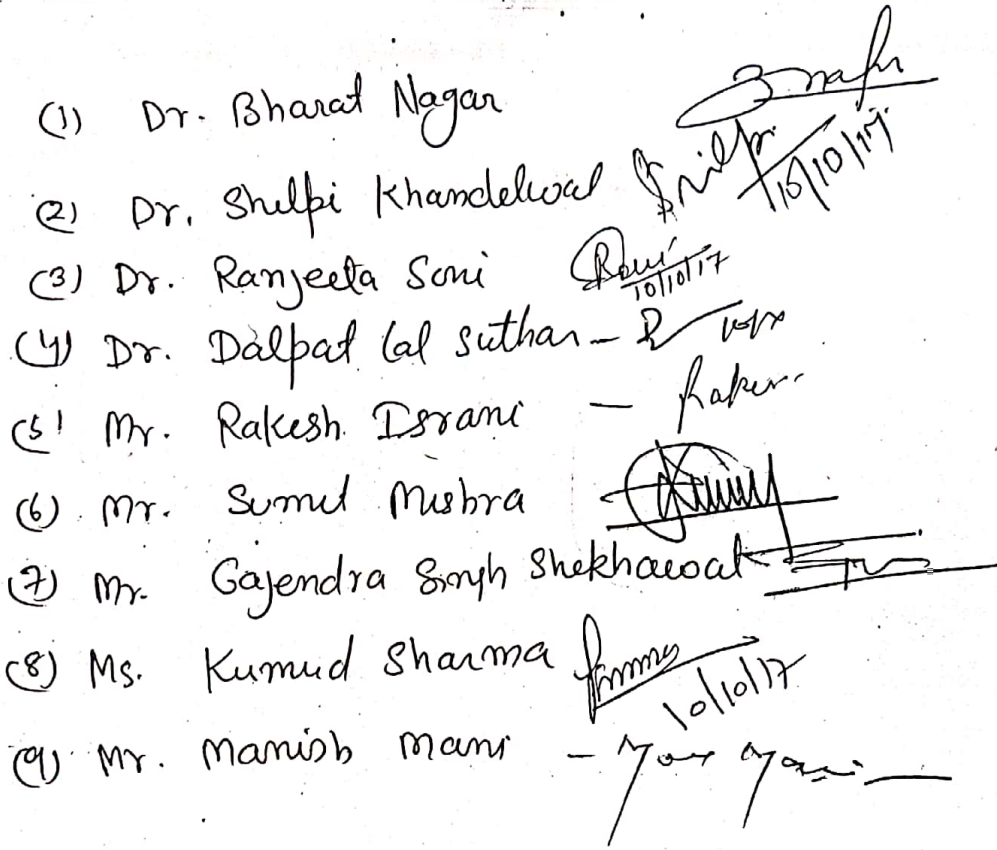 (1) Dr. Bharat Nagar
10/10/17
(2) Dr. Shilpi Khandelwal Shilpi
(3) Dr. Ranjeeta Soni Soni
10/10/17
(4) Dr. Dalpat Lal Suthar -
(5) Mr. Rakesh Israni - Rakesh
(6) Mr. Sumit Mishra
(7) Mr. Gajendra Singh Shekhawat
(8) Ms. Kumud Sharma
10/10/17
(9) Mr. Manish Mani -